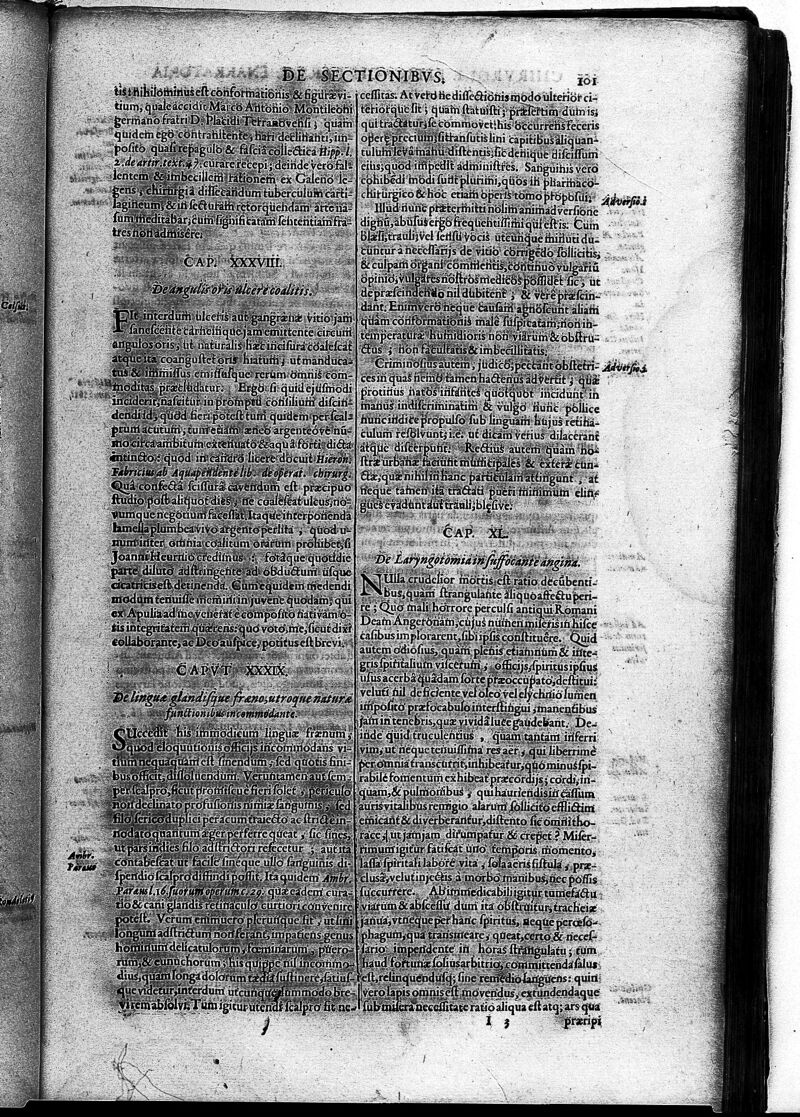 DE SECTIONIBVS.
101
tis; nihilominus est conformationis & figuræ vi-
tium, quale accidit Marco Antonio Montileoni
germano fratri D. Placidi Terranovensi; quam
quidem ego contrahente, hari declinanti, im-
posito quasi repagulo & fascia collectica Hipp. l.
2. de artic. text. 47. curare recepi; deinde vero fal-
lentem & imbecillem rationem ex Galeno le-
gens, chirurgia dissecandum tuberculum carti-
lagineum, & in sectura retorquendam arte na-
sum meditabar; cum significatam sententiam fra-
tres non admisere.
CAP. XXXVIII.
De angulis oris ulcere coalitis.
FIt interdum ulceris aut gangrænæ vitio jam
sanescente carnemque jam emittente circum
angulos oris; ut naturalis hæc incisura coalescat
atque ita coangustet oris hiatum; ut manduca-
tus & immissus emissusque rerum omnis com-
moditas præcludatur. Ergo si quid ejusmodi
inciderit, nascitur in promptu consilium discin-
dendi id; quod fieri potest tum quidem per scal-
prum acutum; tum etiam æneo argenteóve nu-
mo circa ambitum extenuato & aqua forti, dicta
intincto: quod in cancro licere docuit Hieron.
Fabricius ab Aquapendente lib. de operat. chirurg.
Qua confecta scissura cavendum est præcipuo
studio post aliquot dies, ne coalescat ulcus, no-
vumque negotium facessat. Itaque interponenda
lamella plumbea vivo argento perlita; quod u-
num inter omnia coalitum orarum prohibet, si
Joanni Heurnio credimus: fotaque quotidie
parte diluto adstringente ad obductum usque
cicatricis est detinenda. Cum equidem medendi
modum tenuisse memini in juvene quodam, qui
ex Apulia ad me venerat e composito nativam o-
ris integritatem quærens: quo voto, me, sicut dixi
collaborante, ac Deo auspice, potitus est brevi.
CAPVT XXXIX.
De linguæ glandisque fræno, utroque naturæ
functionibus incommodante.
SUccedit his immodicum linguæ frænum;
quod eloquutionis officijs incommodans vi-
tium nequaquam est sinendum, sed quotis fini-
bus officit, dissoluendum. Veruntamen aut sem-
per scalpro, sicut promiscue fieri solet, periculo
non declinato profusionis nimiæ sanguinis; sed
filo serico duplici per acum traiecto ac stricte in-
nodato quantum æger perferre queat, sic sines,
ut pars indies filo adstrictori resecetur; aut ita
contabescat ut facile sineque ullo sanguinis di-
spendio scalpro diffindi possit. Ita quidem Ambr.
Paraus l. 16. suorum operum c. 29. quæ eadem cura-
tio & cani glandis retinaculo curtiori convenire
potest. Verum enimvero plerunque fit, ut lini
longum adstrictum non ferant, impatiens genus
hominum delicatulorum, fœminarum, puero-
rum, & eunuchorum; his quippe nil incommo-
dius, quam longa dolorum tædia sustinere, satius-
que videtur, interdum utcunque summodo bre-
vi rem absolvi. Tum igitur utendi scalpro fit ne-
Ambr.
Paraus
cessitas. At vero ne dissectionis modo ulterior ci-
teriorque sit; quam statuisti; præsertim dum is,
qui tractatur, se commovet; his occurrens feceris
operæ precium; si transutis lini capitibus aliquan-
tulum leva manu distentis, sic denique discissum
ius; quod impedit administres. Sanguinis vero
cohibendi modi sunt plurimi, quos in pharmaco-
chirurgico & hoc etiam operis tomo proposui.
Illud nunc prætermitti nolim animadversione
dignũ, abusus ergo frequentissimi qui est is. Cum
blæsi, trauli; vel sensu vocis utcunque minuti du-
cuntur à necessarijs de vitio corrigendo sollicitis,
& culpam organi commentis, continuo vulgariũ
opinio, vulgares nostros medicos possidet sic, ut
de præscindendo nil dubitent; & vere præscin-
dant. Enimvero neque causam agnoscunt aliam
quàm conformationis malè suspitatam, non in-
temperaturæ humidioris non viarum & obstru-
ctus; non facultatis & imbecillitatis.
Criminosius autem, judico, peccant obstetri-
ces in quas nemo tamen hactenus advertit; quæ
protinus natos infantes quotquot incidunt in
manus indiscriminatim & vulgo nunc pollice
nunc indice propulso sub linguam hujus retina-
culum resolvunt; i.e. ut dicam verius dilacerant
atque discerpunt. Rectius autem quam no-
stræ urbanæ faciunt municipales & exteræ cun-
ctæ, quæ nihil in hanc particulam attingunt, at
neque tamen ita tractati pueri minimum elin-
gues evadunt aut trauli, blesive.
Adversio 2
Adversio 3.
CAP. XL.
De Laryngotomia in suffocante angina.
NUlla crudelior mortis est ratio decubenti-
bus, quam strangulante aliquo affectu peri-
re; Quo mali horrore perculsi antiqui Romani
Deam Angeronam, cujus numen miseris in hisce
casibus implorarent, sibi ipsis constituêre. Quid
autem odiosius, quam plenis etiamnum & inte-
gris spiritalium viscerum; officijs, spiritus ipsius
usu acerba quâdam sorte præoccupato, destitui:
veluti nil deficiente vel oleo vel elychnio lumen
imposito præfocabulo interstingui; manentibus
jam in tenebris, quæ vivida luce gaudebant. De-
inde quid truculentius, quam tantam inferri
vim, ut neque tenuissima res aer, qui liberrimè
per omnia transcurrit, inhibeatur, quo minus spi-
rabile fomentum exhibeat præcordijs; cordi, in-
quam, & pulmonibus, qui haurlendis in cassum
auris vitalibus remigio alarum sollicito efflictim
emicant & diverberantur, distento sic omni tho-
race, ut jamjam dirumpatur & crepet? Miser-
rimum igitur fatiscat uno temporis momento,
lassa spiritali labore vita, sola aeris fistula, præ-
clusâ, velut injectis à morbo manibus, nec possis
succurrere. Ab immedicabili gitur tumefactu
viarum & abscessu dum ita obstruitur, tracheiæ
janua, ut neque per hanc spiritus, neque per œso-
phagum, qua transmeare; queat, certo & neces-
sario impendente in horas strangulatu; tum
haud fortunæ solius arbitrio, committenda salus
est, relinquendusq; sine remedio languens: quin
vero lapis omnis est movendus, extundendaque
sub misera necessitate ratio aliqua est atq; ars qua
I 3
præripi